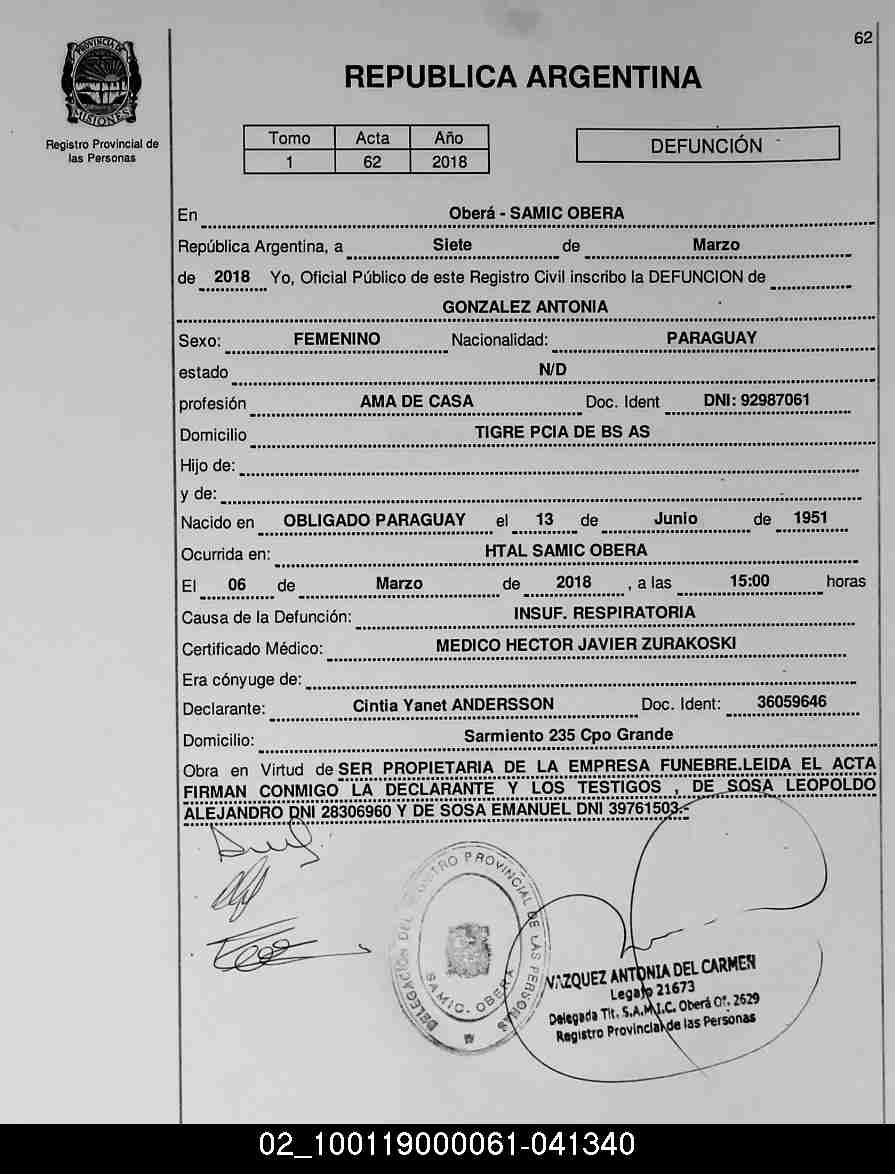 62
PROVINCIA DE
MISIONES
Registro Provincial de
las Personas
REPUBLICA ARGENTINA
Tomo Acta Año
1 62 2018
DEFUNCIÓN
En Oberá - SAMIC OBERA
República Argentina, a Siete de Marzo
de 2018 Yo, Oficial Público de este Registro Civil inscribo la DEFUNCION de
GONZALEZ ANTONIA
Sexo: FEMENINO Nacionalidad: PARAGUAY
estado N/D
profesión AMA DE CASA Doc. Ident DNI: 92987061
Domicilio TIGRE PCIA DE BS AS
Hijo de:
y de:
Nacido en OBLIGADO PARAGUAY el 13 de Junio de 1951
Ocurrida en: HTAL SAMIC OBERA
El 06 de Marzo de 2018 , a las 15:00 horas
Causa de la Defunción: INSUF. RESPIRATORIA
Certificado Médico: MEDICO HECTOR JAVIER ZURAKOSKI
Era cónyuge de:
Declarante: Cintia Yanet ANDERSSON Doc. Ident: 36059646
Domicilio: Sarmiento 235 Cpo Grande
Obra en Virtud de SER PROPIETARIA DE LA EMPRESA FUNEBRE.LEIDA EL ACTA
FIRMAN CONMIGO LA DECLARANTE Y LOS TESTIGOS , DE SOSA LEOPOLDO
ALEJANDRO DNI 28306960 Y DE SOSA EMANUEL DNI 39761503.-
DELEGACIÓN DEL REGISTRO PROVINCIAL DE LAS PERSONAS
SAMIC. OBERA
VAZQUEZ ANTONIA DEL CARMEN
Legajo 21673
Delegada Tit. S.A.M.I.C. Oberá Of. 2629
Registro Provincial de las Personas
02_100119000061-041340